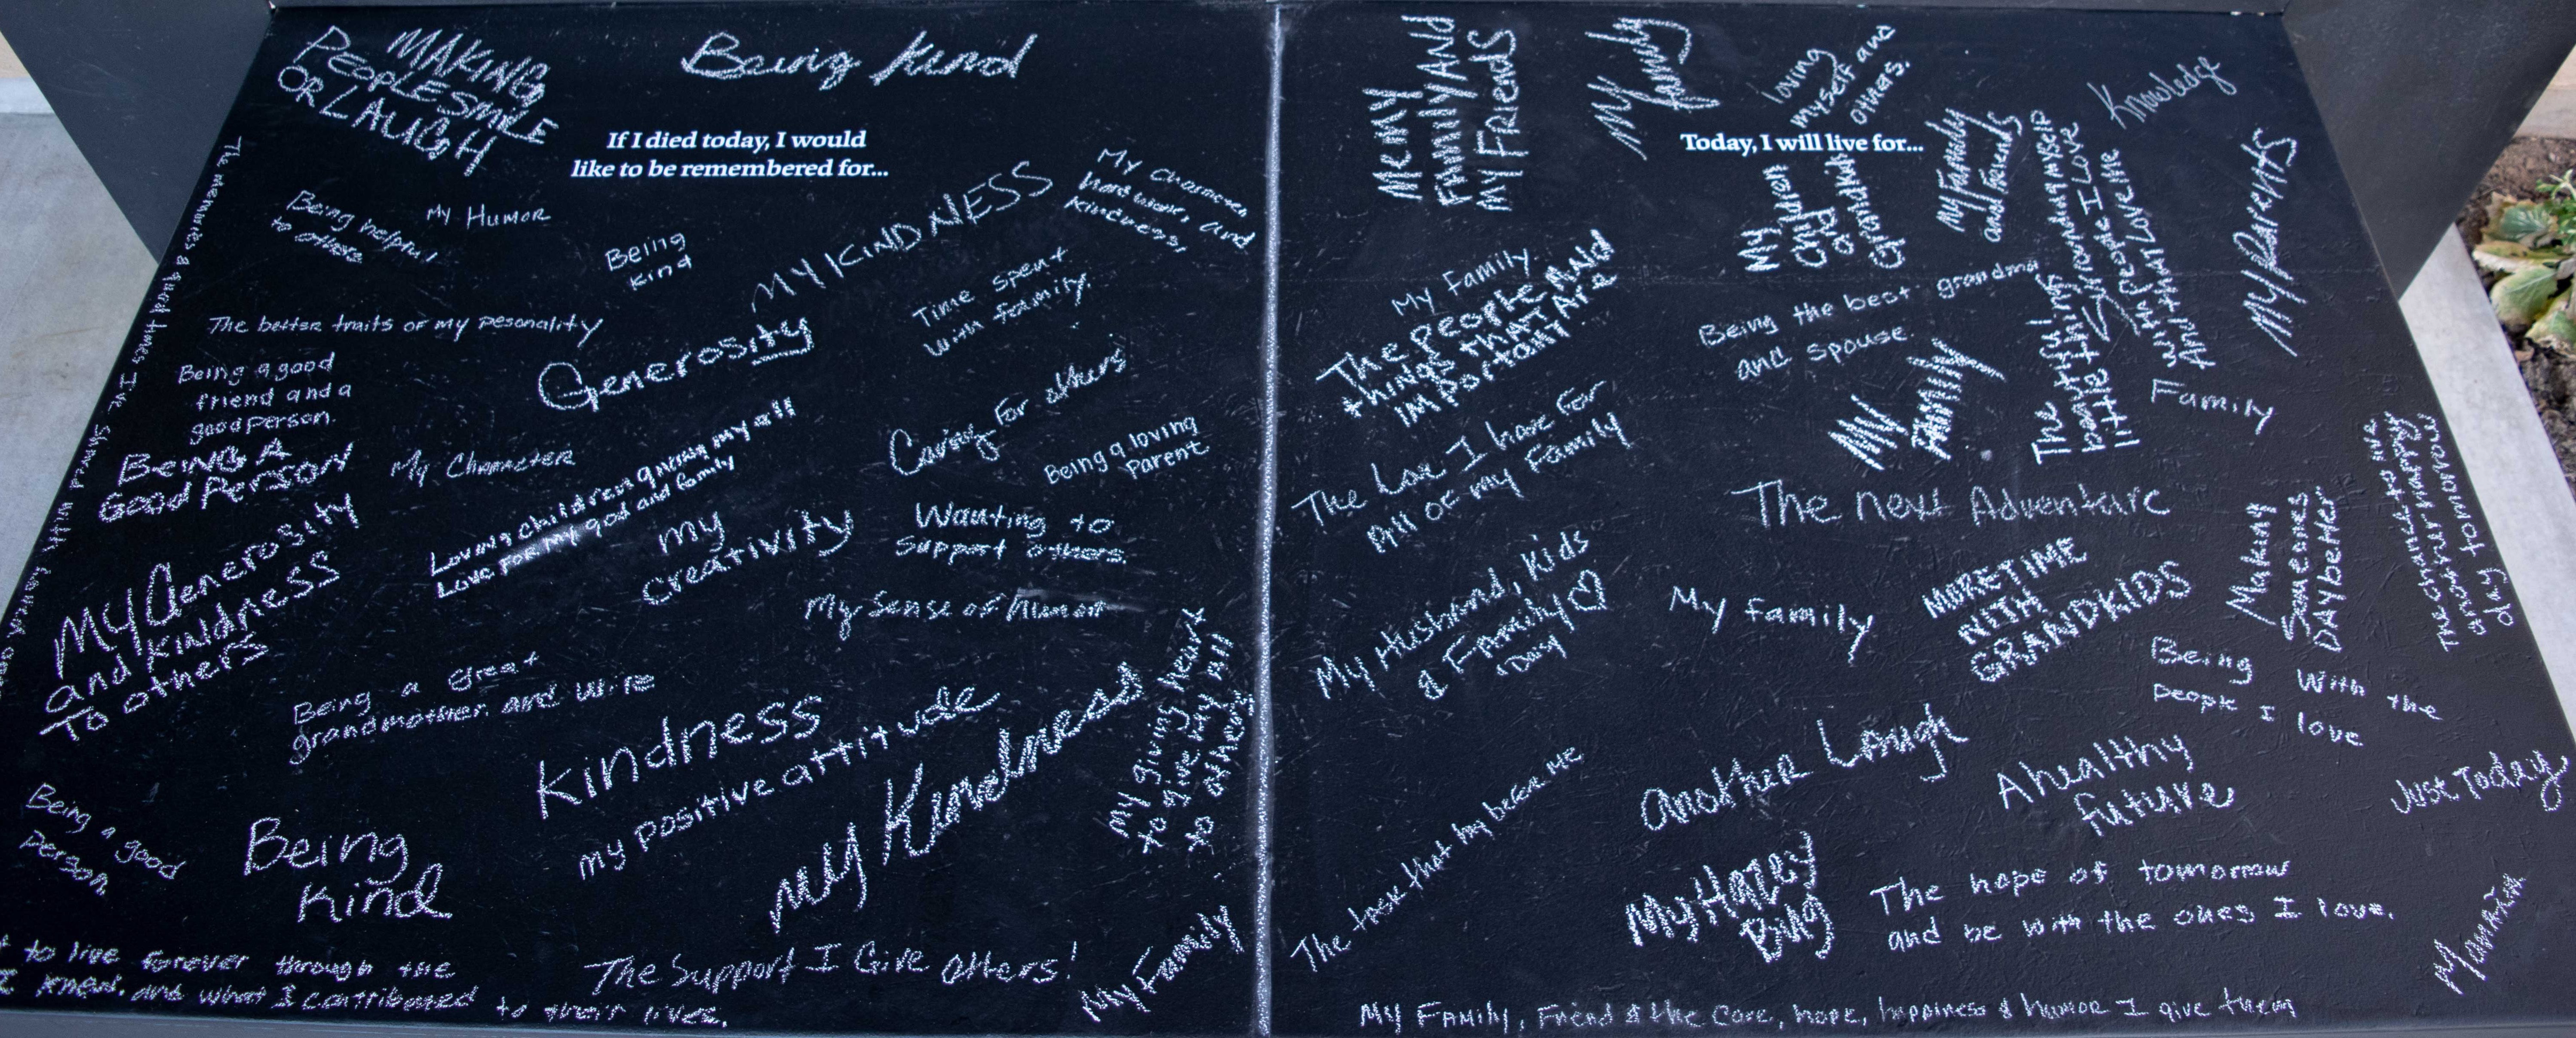 MAKING
PEOPLE SMILE
OR LAUGH
Being Kind
If I died today, I would
like to be remembered for...
The memories & good times I've shared with
Being helpful
to others
My Humor
Being
Kind
My KINDNESS
My character
hard work, and
kindness,
The better traits of my pesonality
Time spent
with family.
Generosity
Being a good
friend and a
good person.
Caring For others
BEING A
Good Person
My Character
Loving children giving my all
Love For my god and family
Being a loving
Parent
My Generosity
and kindness
To others
my
creativity
Wanting to
support others.
My Sense of humor
Being a great
grandmother and wife
kindness
my positive attitude
my Kindness
My giving heart
to give way all
to others
Being a good
person
Being
Kind
to live forever through the
I knew, and what I contributed
to their lives.
The Support I Give others!
My Family
Me my
Family And
My Friends
My
family
loving
myself and
others.
Today, I will live for...
Knowledge
My
Children
and
Grandkids
My Family
and Friends
Surrounding myself
with People I Love
And that Love me
My Parents
My Family
The People And
things that Are
Important
Being the best grandma
and spouse
The
beautiful
little things
My
Family
Family
The Love I have for
All of my Family
The next Adventure
Making
Someones
Day better
The chance to live
another happy
day tomorrow
My Husband, Kids
& Family ♡
Day
My family
MORE TIME
WITH
GRANDKIDS
Being With the
people I love
The task that lay before me
another Laugh
A healthy
future
Just Today
My
Dog
The hope of tomorrow
and be with the ones I love.
My Family, Friend & the Care, hope, happiness & humor I give them